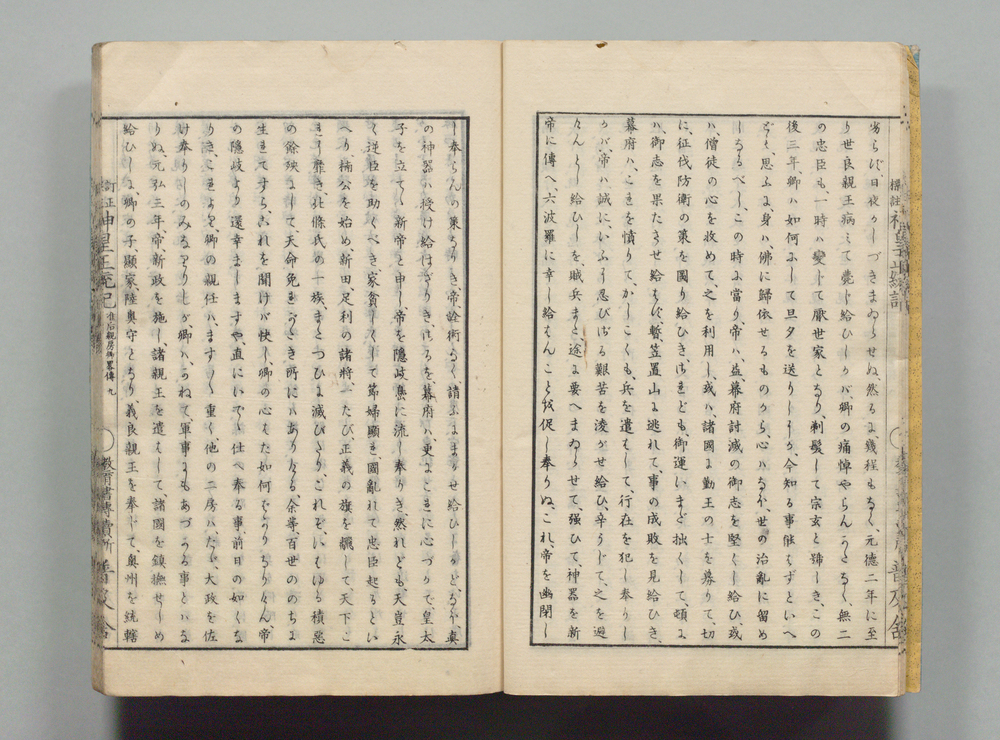 劣らび、日夜かしづきまゐらせぬ然るに、幾程もなく、元德二年に至
り世良親王病みて薨じ給ひしかバ卿の痛悼やらんかたなく、無二
の忠臣も、一時ハ變じて厭世家となり、剃髪して宗玄と號しき、この
後三年、卿ハ如何にして旦夕を送りしよか、今知る事能はずといへ
ども、思ふに、身ハ佛に歸依せるものから、心ハなほ、世の治亂に留め
しなるべし、この時に當り、帝ハ、益、幕府討滅の御志を堅くし給ひ、或
ハ、僧徒の心を收めて、之を利用し、或ハ、諸國に勤王の士を募りて、切
に、征伐防衛の策を圖り給ひき、されども、御運いまだ拙くして、頓に
ハ、御志を果たさせ給はず、暫、笠置山に逃れて、事の成敗を見給ひき、
幕府ハ、これを憤りて、かしこくも、兵を遣はして、行在を犯し奉りし
かバ、帝ハ、誠に、いふに忍びざる艱苦を淩がせ給ひ、辛うじて、之を避
けんとし給ひしを、賊兵まと、途に要へまゐらせて、强ひて、神器を新
帝に傳へ、六波羅に幸し給はんことを促し奉りぬ、これ、帝を幽閉し
標註 神皇正統記
普及舍
し奉らんの策なりき、帝、詮術なく、請ふにまかせ給ひしかど、なほ、眞
の神器ハ、授け給はざりき、さるを、幕府ハ、更にこれに心づかで、皇太
子を立てゝ新帝と申し、帝を隱岐島に流し奉りき、然れども、天豈永
く逆臣を助くべき、家貧しくして節婦顯れ、國亂れて忠臣起るとい
へり、楠公を始め、新田、足利の諸將、一たび、正義の旗を飜して、天下こ
れに靡き、北條氏の一族、まとつひに滅びたり、これぞ、いはゆる積惡
の餘殃にて、天命免るべき所にハあらざる、余等、百世ののちに
生れてすら、これを聞けバ快し、卿の心はた如何なりけん、帝
の隱岐より還幸ましますや、直にいでゝ仕へ奉る事、前日の如くな
りき、これより、卿の親任ハ、ますゝ重く、他の二房ハ、たゞ、大政を佐
け奉りしのみなりしが、卿ハ、かねて、軍事にもあづかる事とハな
りぬ、元弘三年、帝、新政を施し、諸親王を遣はして、諸國を鎭撫せしめ
給ひしに、卿の子、顯家、陸奧守となり、義良親王を奉じて、奧州を統轄
訂正 神皇正統記 准后親房卿畧傳 九
敎育書專賣所 普及舍